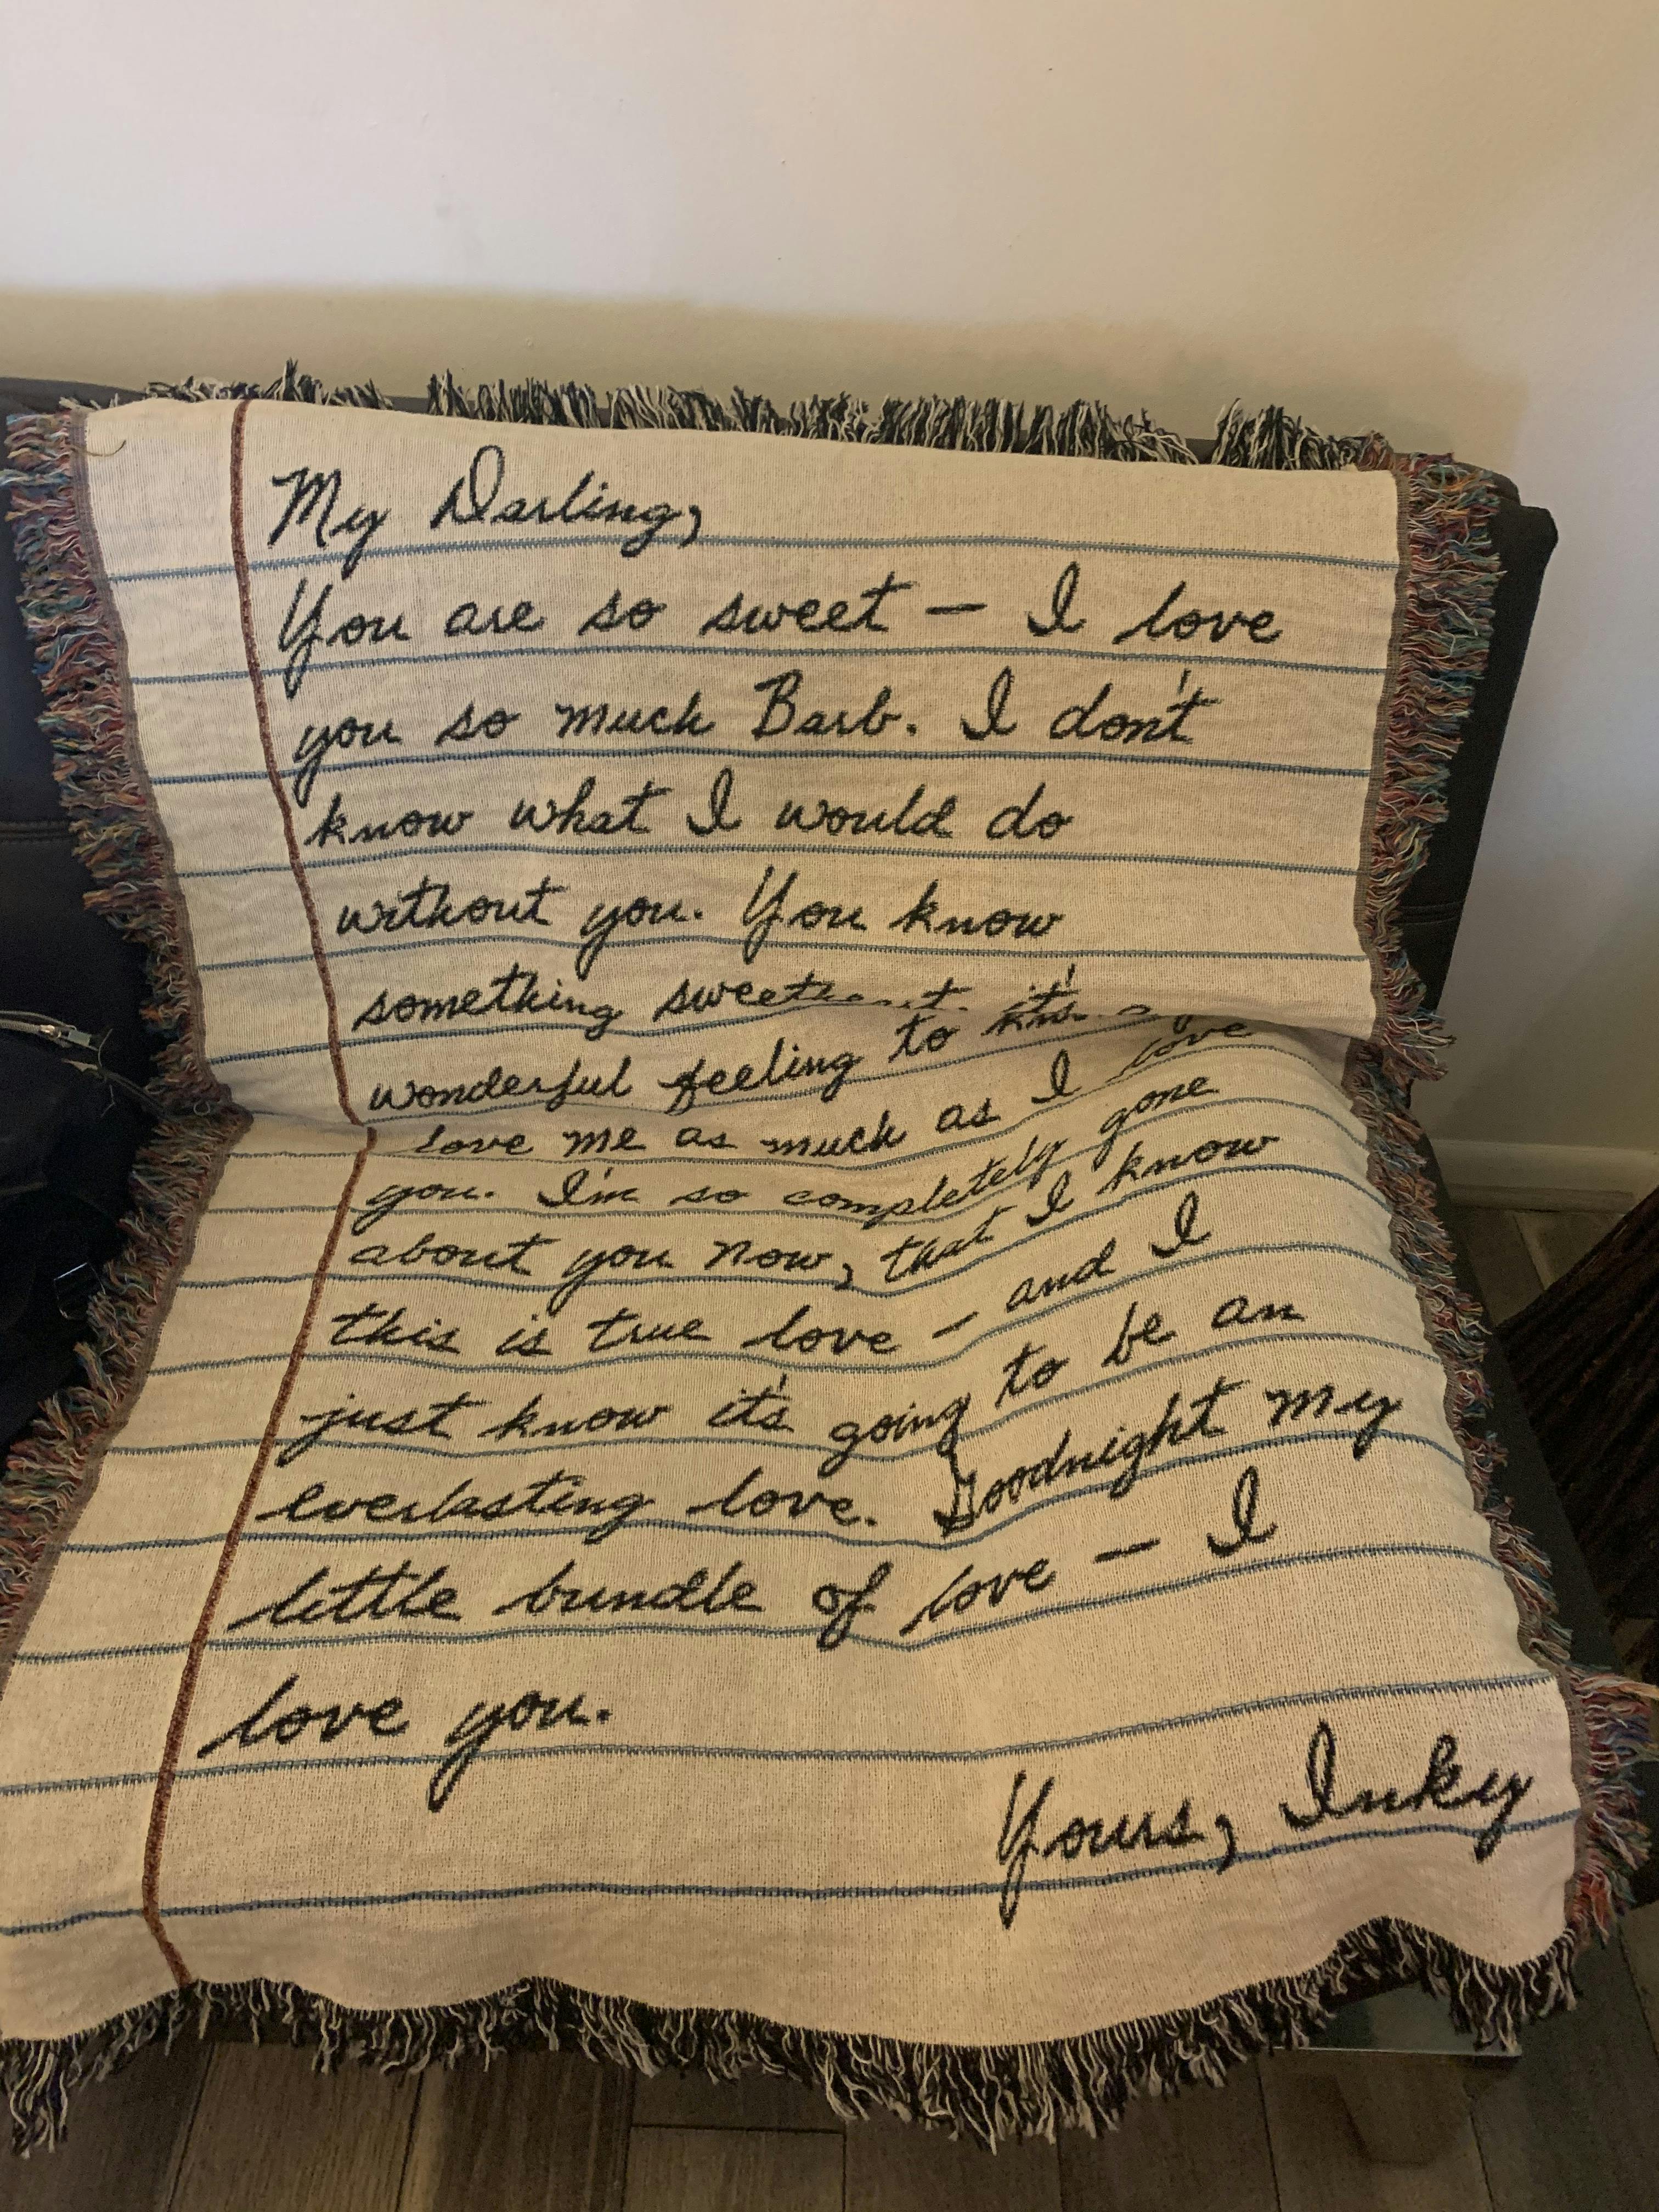 My Darling,
You are so sweet — I love
you so much Barb. I don't
know what I would do
without you. You know
something sweetheart, it's
wonderful feeling to
love me as much as I love
you. I'm so completely gone
about you now, that I know
this is true love — and I
just know it's going to be an
everlasting love. Goodnight my
little bundle of love — I
love you.
Yours, Inky